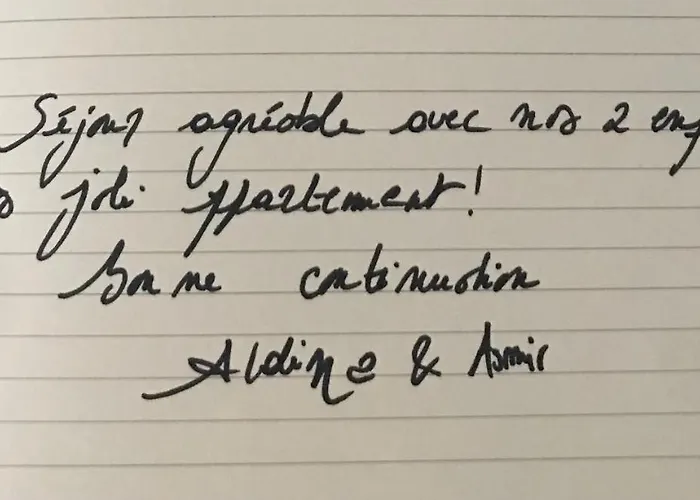 Séjour agréable avec nos 2 enf
joli appartement!
Bonne continuation
Aldine & Asmir